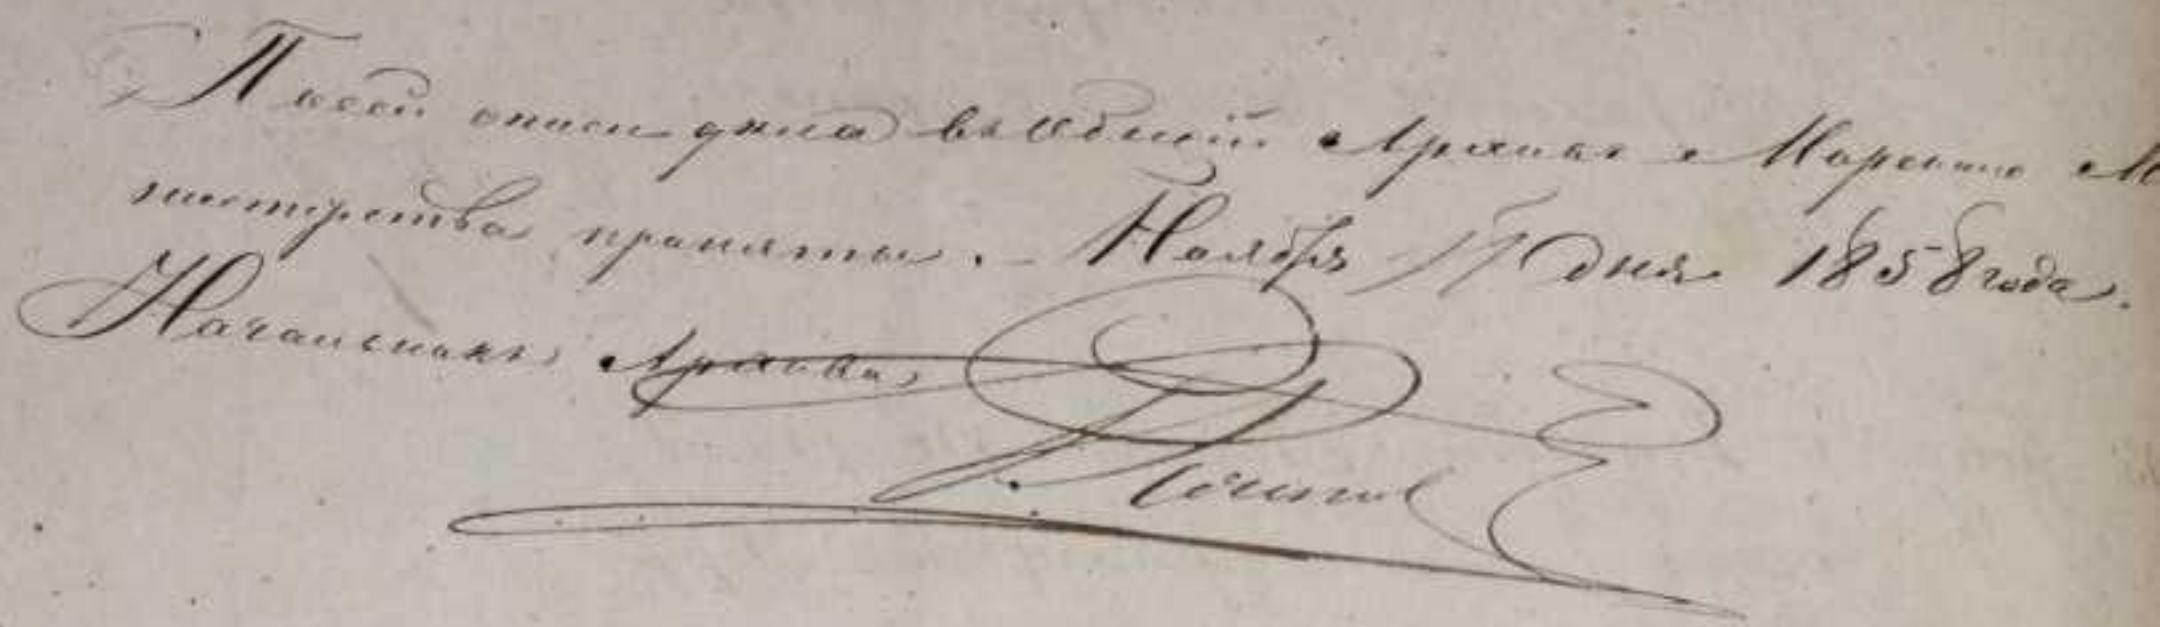 По сей описи дела въ Общiй Архивъ Морскаго М
нистерства приняты. – Ноября 17 дня 1858 года.
Начальникъ Архива